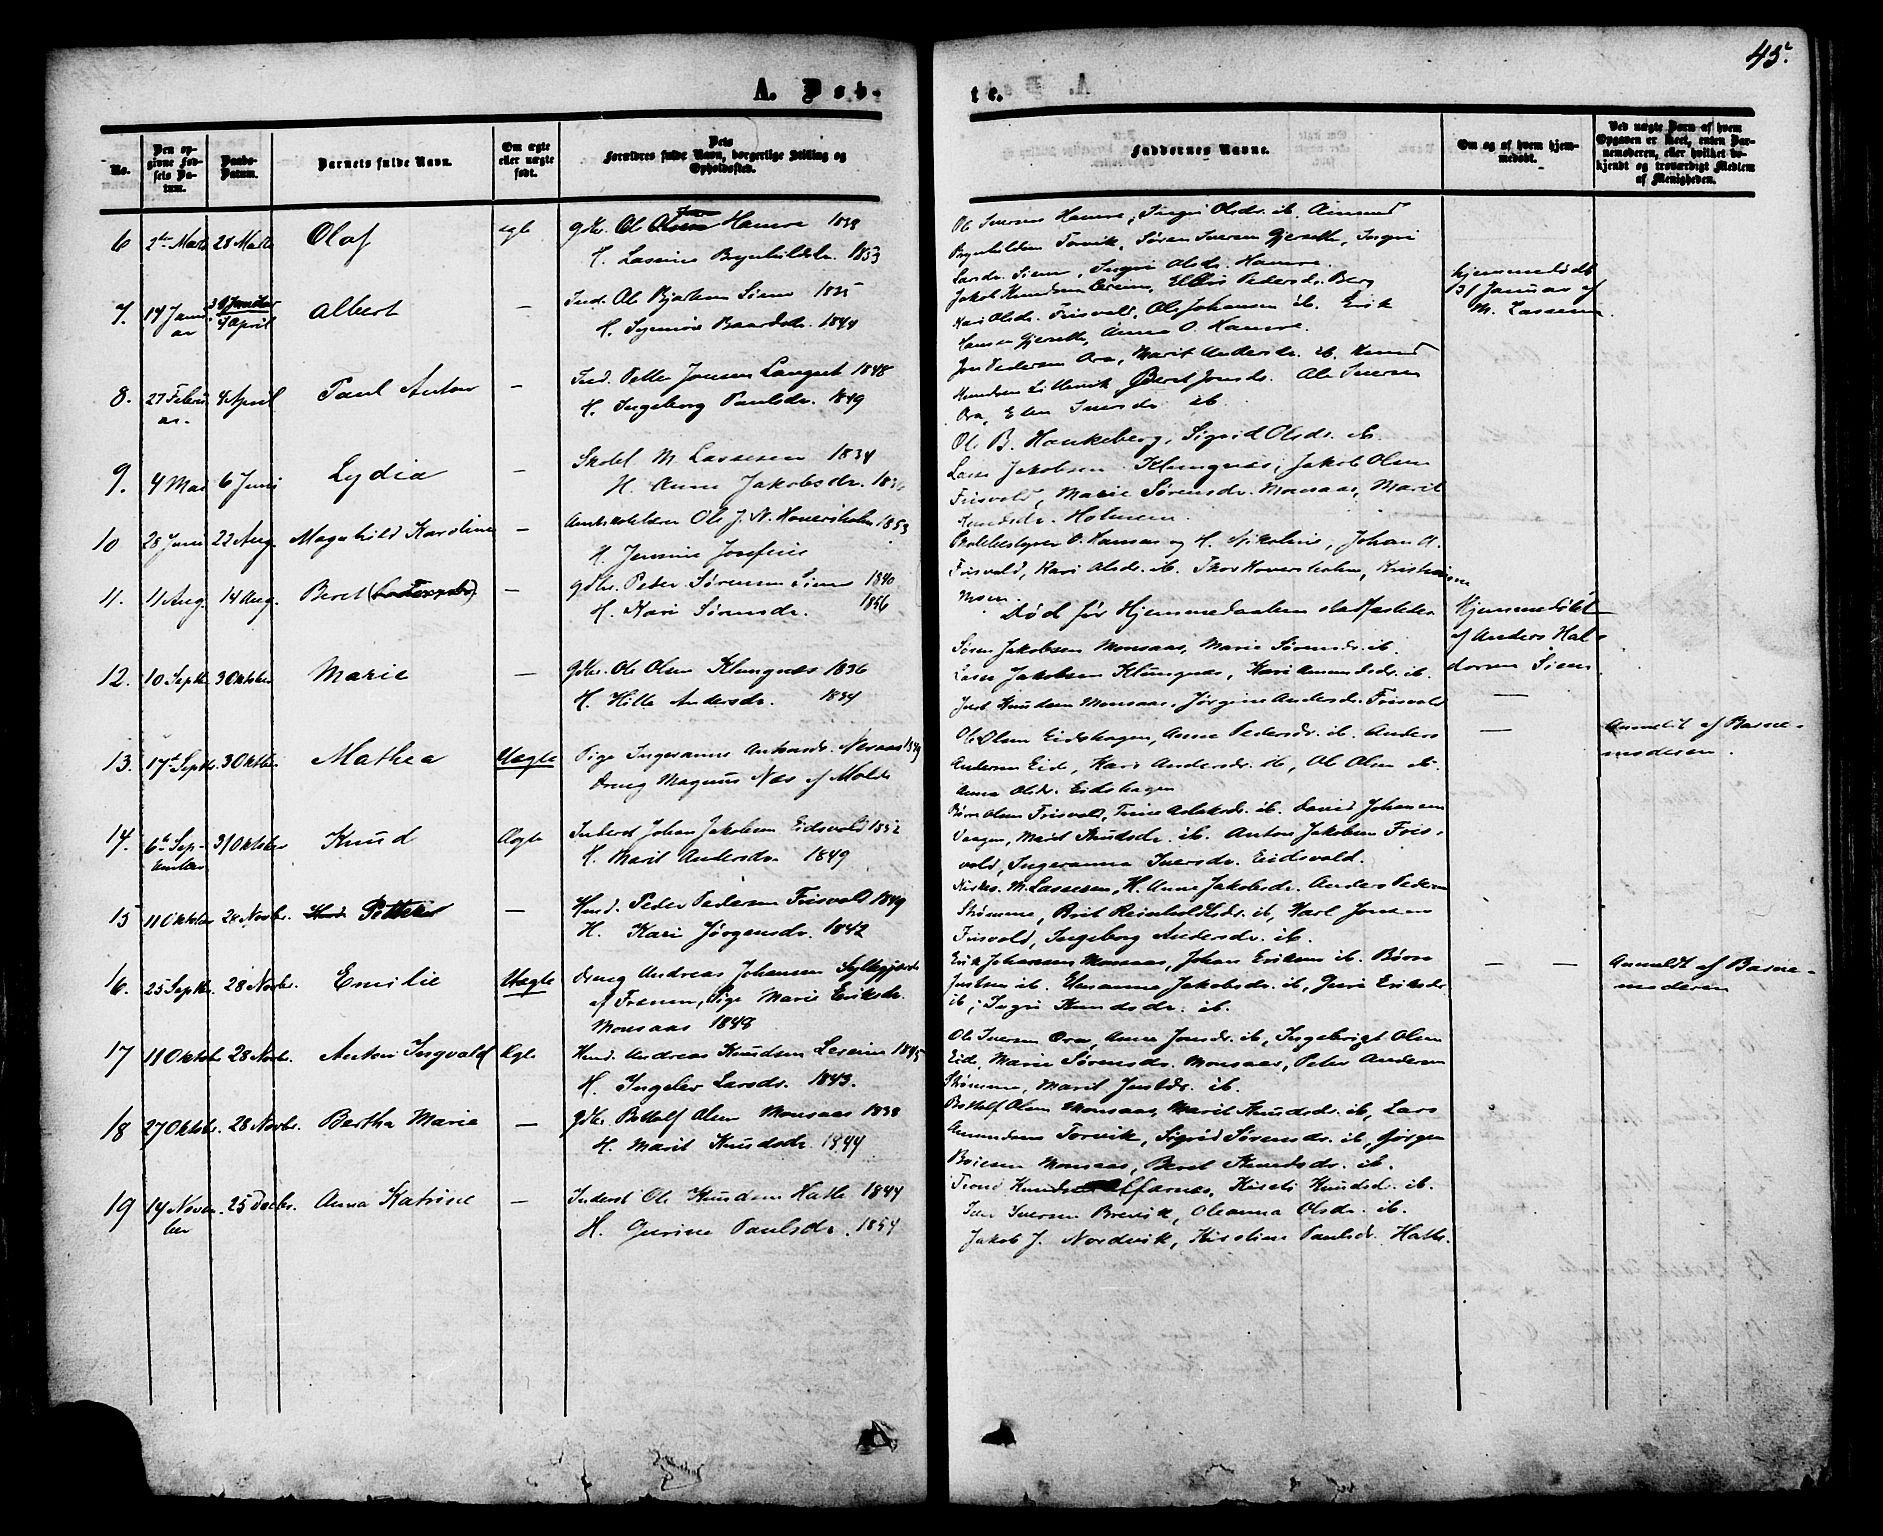 45.
A. Døb-
te.
No.
Den opgivne Fødsels Datum.
Daabs-Datum.
Barnets fulde Navn.
Om ægte eller uægte født.
Dets Forældres fulde Navn, borgerlige Stilling og Opholdssted.
Faddernes Navne.
Om og af hvem hjemmedøbt.
Ved uægte Børn af hvem Opgaven er skeet, enten Barnemoderen, eller hvilket bekjendt og troværdigt Medlem af Menigheden.
6 2den Marts 28 Marts Olaf ægte Gbr. Ole Hamre 1838
H. Lassine Brynhildsdr. 1853
Ole Iversen Hamre, Ingri Olsdr. ib. Amund
Brynhildsen Torvik, Søren Iversen Gjersette, Ingri
Larsdr. Siem, Ingri Olsdr. Hamre.
7. 14 Januar 4 April Albert — Ind. Ole Siem 1835
H. Synnøve Baardsdr. 1844
Jakob Knudsen Pedersdr. Berg
Kari Olsdr. Frisvold, Ole Johansen ib. Erik
Hansen Gjersette, Anna O. Hamre.
hjemmedøbt
31 Januar af
M. Lassesen
8. 27 Februar. 4 April Paul Anton — Ind. Petter Jonsen Langset 1848
H. Ingeborg Paulsdr. 1849
Jon Pedersen Øra, Marit Andersdr. ib. Knud
Knudsen Lillevik, Beret Jonsdr. Ole Iversen
Øra, Elen Iversdr ib.
9. 4 Mai 6 Juni Lydia — Skolel. M. Lassesen 1834
H. Anne Jakobsdr.
Ole B. Haukeberg, Sigrid Olsdr. ib.
Lasse Jakobsen Klungnes, Jakob Olsen
Frisvold, Marie Sørensdr. Monsaas, Marit
Knudsdr. Holmem
10 28 Juni 22 Aug. Magnhild Karoline — Amtsskolelærer Ole J. N. Hoversholm 1853
H. Jensine Josefine
Skolebestyrer O. Hansen og H. Nikoline, Johan A.
Frisvold, Kari Olsdr. ib. Thor Hoversholm, Kristiane
Moen.
11. 11 Aug 14 Aug. Beret — Gbr. Peder Sørensen Siem 1840
H. Kari Sørensdr. 1856
Død før Hjemmedaaben stadfæstedes
Hjemmedøbt
af Anders Hal-
dorsen Siem
12. 10 Septbr. 3 Oktober Marie — Gbr. Ole Olsen Klungnes 1836
H. Hille Andersdr. 1834
Søren Jakobsen Monsaas, Marie Sørensdr. ib.
Lasse Jakobsen Klungnes, Kari Amundsdr. ib.
Knudsen Monsaas, Jørgine Andersdr. Frisvold
—
13. 17de Septbr. 3 Oktbr. Mathea Uægte Pige Ingeranna Neraas
Dreng Magnus Næs af Molde
Ole Olsen Eidshagen, Anne Pedersdr. ib. Anders
Andersen Eide, Kari Andersdr. ib, Ole Olsen ib.
Anna Olsdr. Eidshagen
—
Anmeldt af Barne-
moderen.
14. 6te September 31 Oktober Knud Ægte Inderst Johan Jakobsen Eidsvold 1852
H. Marit Andersdr. 1849
Børre Olsen Frisvold, Trine Aslaksdr. ib. David Johansen
Vaagen, Marit Knudsdr. ib. Anton Jakobsen Fris-
vold, Ingeranna Iversdr. Eidsvold.
15 11 Oktober 28 Novbr. Petter — Huusm. Peder Pedersen Frisvold 1849
H. Kari Jørgensdr. 1842
Kirkes. M. Lassesen, H. Anne Jakobsdr. Anders Pedersen
Strømme, Brit Reinholdtsdr. ib, Karl Jonsen
Frisvold, Ingeborg Andersdr. ib.
16. 25 Septbr. 28 Novbr. Emilie Uægte Dreng Andreas Johansen
af Frænen, Pige Marie Eriksdr.
Monsaas 1848
Erik Johansen Monsaas, Johan Eriksen ib. Børre
Jostsen ib. Elisanne Jakobsdr. ib, Guri Eriksdr
ib, Ingri Knudsdr. ib.
— —
Anmeldt af Barne-
moderen
17 18 Oktober 28 Novbr. Anton Ingvald Ægte Huusm. Andreas Knudsen 1845
H. Ingelev Larsdr. 1843.
Ole Iversen Øra, Anne Jonsdr. ib, Ingebrigt Olsen
Eid, Marie Sørensdr. Monsaas, Peter Andersen
Strømme, Marit Jostsdr. ib.
18 27 Oktobr. 28 Novbr. Bertha Marie — Gbr. Bottolf Olsen Monsaas 1838
H. Marit Knudsdr. 1844
Bottolf Olsen Monsaas, Marit Knudsdr. ib, Lars
Amundsen Torvik, Sigrid Sørensdr. ib, Jørgen
Monsaas, Beret Knudsdr. ib.
19 14 November 25 Decbr. Anna Katrine — Inderst Ole Knudsen Hatle 1844
H. Gurine Paulsdr. 1854
Trond Knudsen Alfarnes, Kirsti Knudsd. ib.
Iver Iversen Brevik, Oleanna Olsdr. ib.
Jakob J. Nordvik, Kirstine Paulsdr. Hatle.